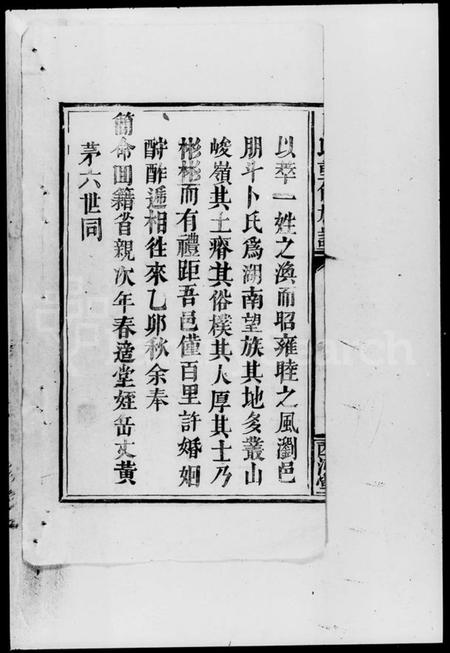 以萃一姓之渙而昭雍睦之風瀏邑
朋斗卜氏爲湖南望族其地多叢山
峻嶺其土瘠其俗樸其人厚其士乃
彬彬而有禮距吾邑僅百里許婚姻
醉酢遞相徃來乙卯秋余奉
簡命回籍省親次年春適堂姪岳丈黃
茅六世同
西河堂